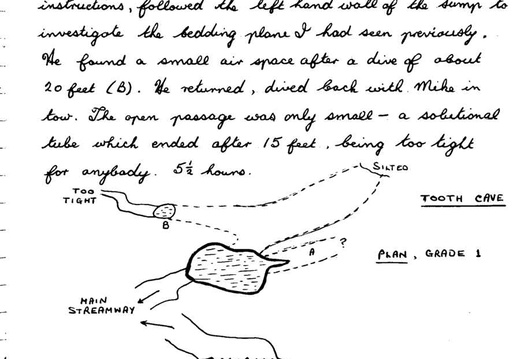 instructions, followed the left hand wall of the sump to
investigate the bedding plane I had seen previously.
He found a small air space after a dive of about
20 feet (B). He returned, dived back with Mike in
tow. The open passage was only small - a solutional
tube which ended after 15 feet, being too tight
for anybady. 5½ hours.
SILTED
TOO
TIGHT
TOOTH CAVE
B
A
?
PLAN, GRADE 1
MAIN
STREAMWAY